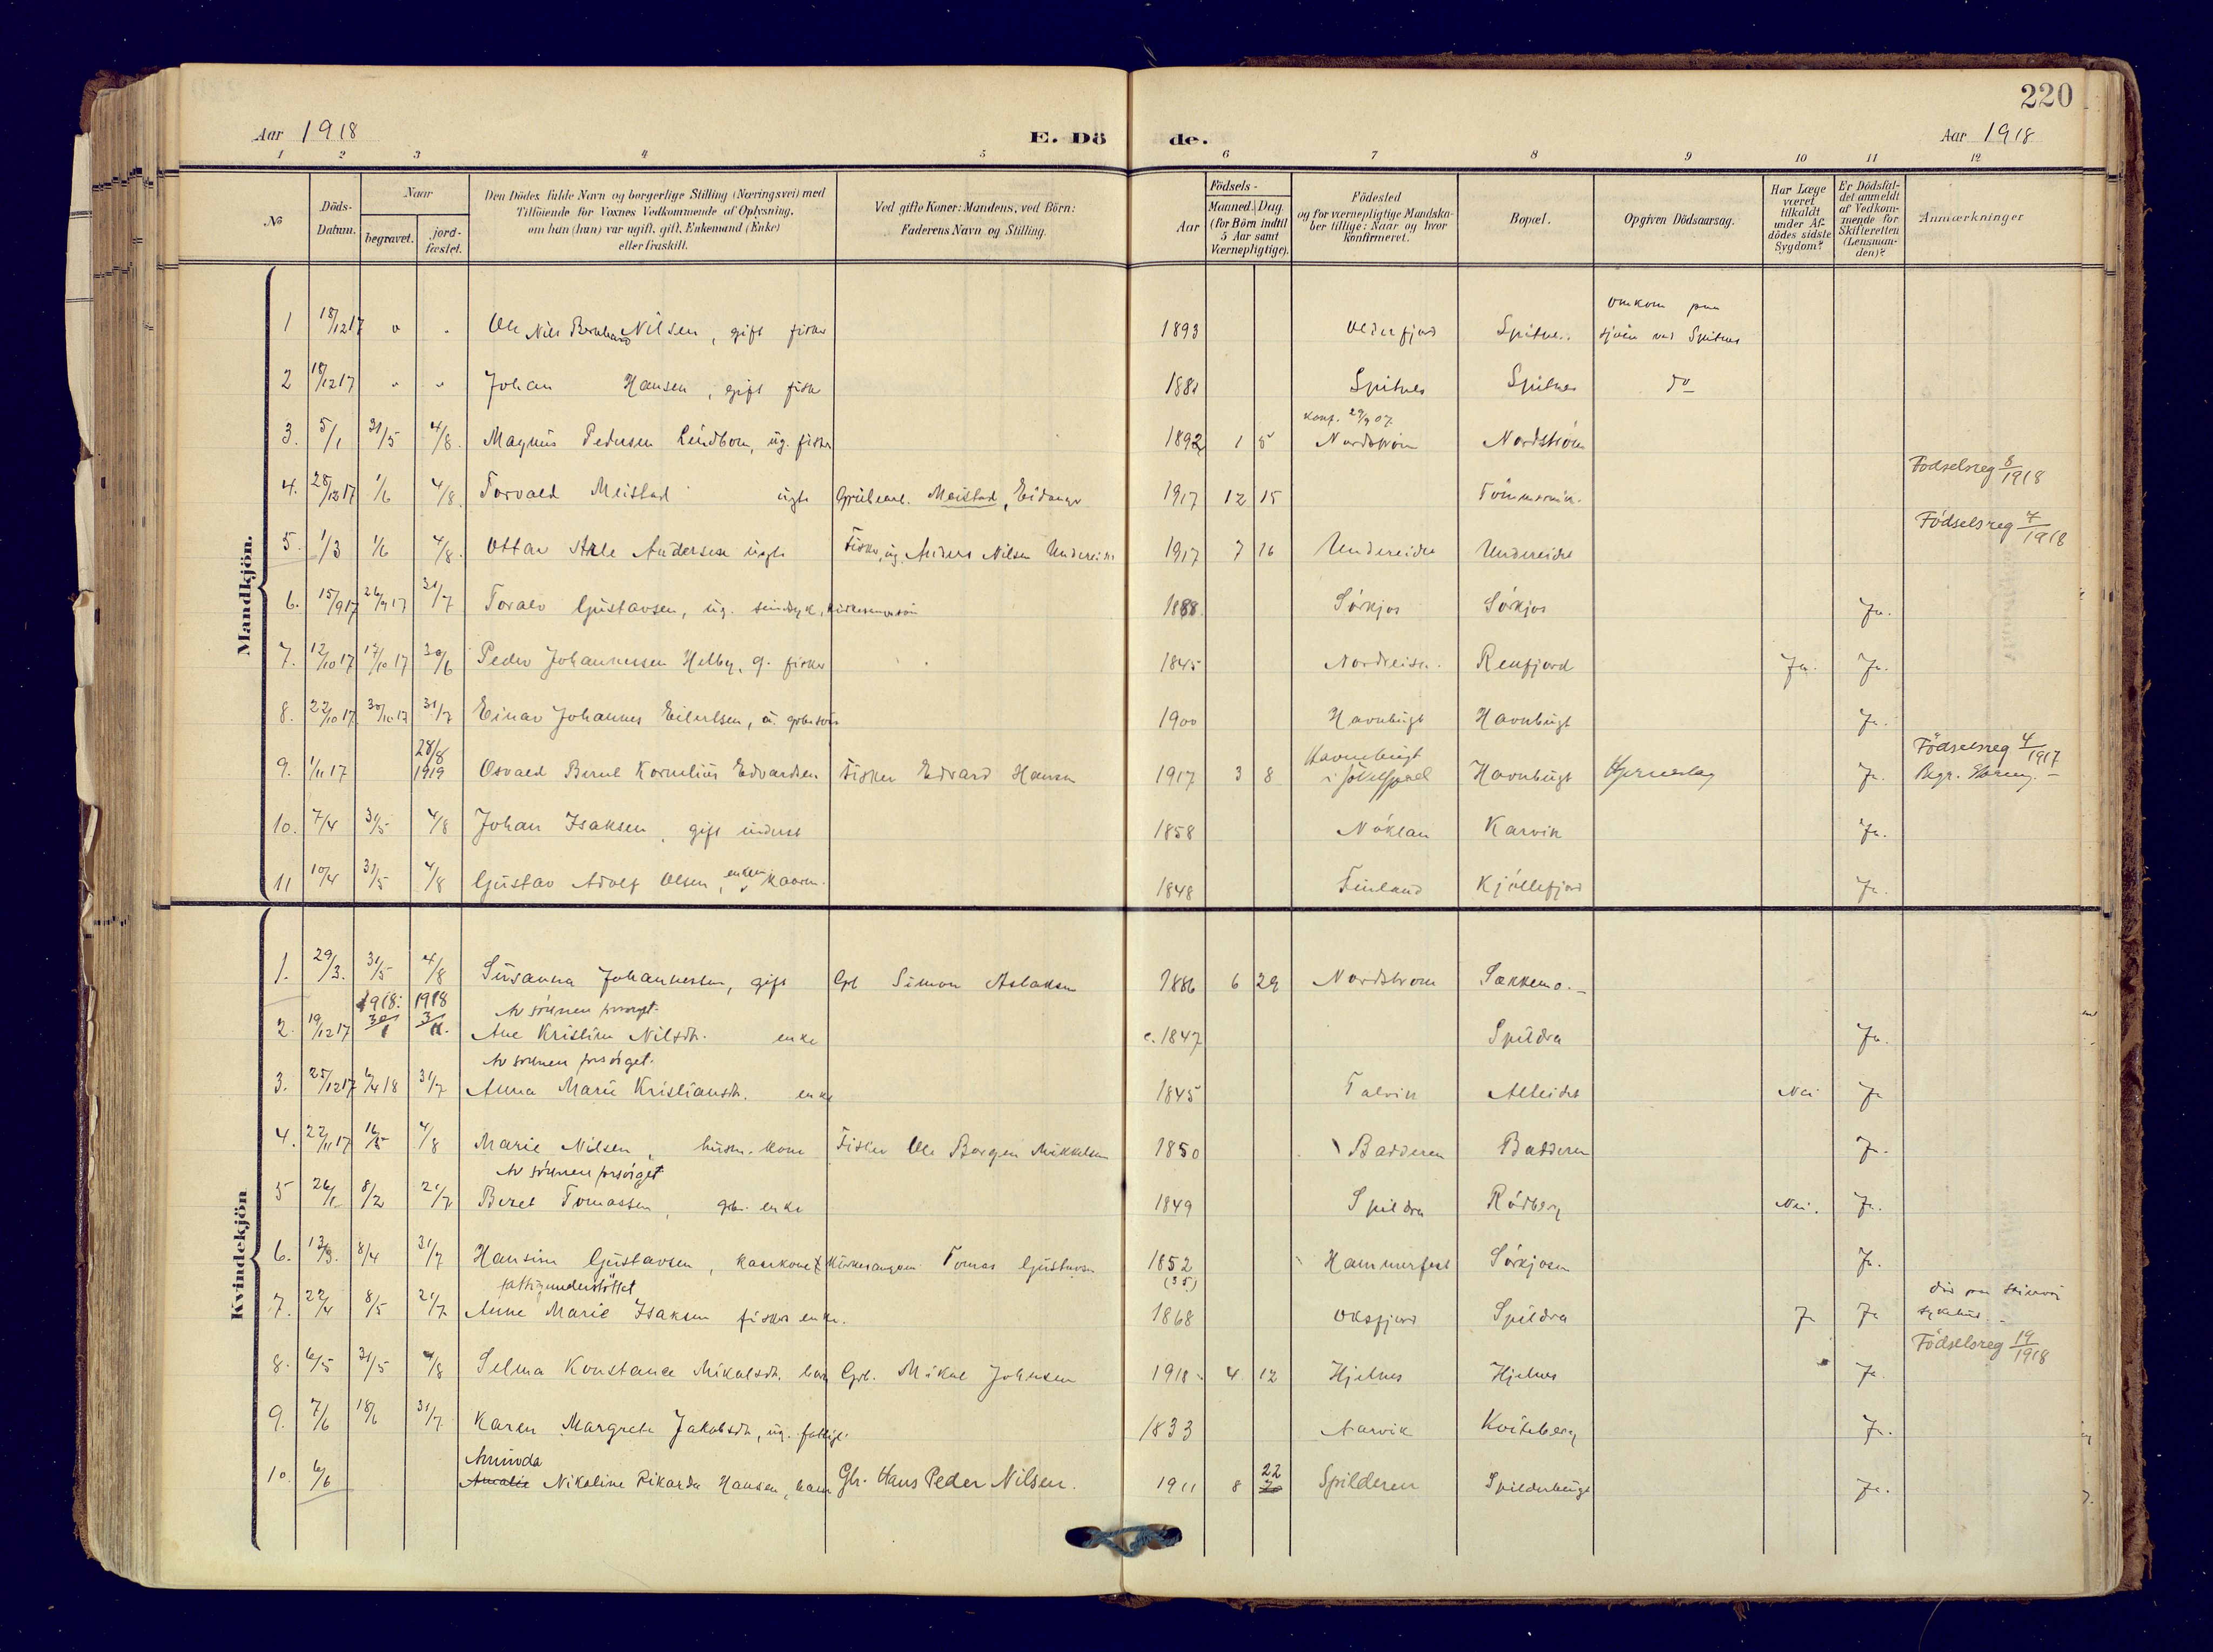 220
Aar 1918 E. Dö de. Aar 1918
1 2 3 4 5 6 7 8 9 10 11 12
No
Döds-Datum.
Naar begravet. jord-fæstet.
Den Dödes fulde Navn og borgerlige Stilling (Næringsvei) med
Tilföiende for Voxnes Vedkommende af Oplysning,
om han (hun) var ugift, gift, Enkemand (Enke)
eller fraskilt.
Ved gifte Koner: Mandens, ved Börn:
Faderens Navn og Stilling.
Aar
Födsels-
Maaned. Dag.
(for Börn indtil
5 Aar samt
Værnepligtige).
Födested
og for værnepligtige Mandska-
ber tillige: Naar og hvor
konfirmeret.
Bopæl.
Opgiven Dödsaarsag.
Har Læge
været
tilkaldt
under Af-
dödes sidste
Sygdom?
Er Dödsfal-
det anmeldt
af Vedkom-
mende for
Skifteretten
(Lensman-
den)?
Anmærkninger
Mandkjön.
omkom paa
1 18/12 17 " " Ole Nils Bernhard Nilsen, gift fisker 1893 Olderfjord Spitnes. sjøen ved Spitnes
2 18/12 17 " " Johan Hansen, gift fisker 1881 Spitnes Spitnes do
konf. 29/9 07.
3. 5/1 31/5 4/8. Magnus Pedersen Lindbom, ug. fisker 1892 1 5 Nordstrøm Nordstrøm
Fødselsreg 8/1918
4. 28/12 17 1/6 4/8. Torvald Meistad ugte Meistad, Eidanger 1917 12 15
Fødselsreg 7/1918
5. 1/3 1/6 4/8. Ottar Atle Andersen ugte Fisker, ug. Anders Nilsen Undereidet 1917 7 16 Undereidet Undereidet
6. 15/9 17 26/9 17 31/7 Toralv Gustavsen, ug. sindsyk, kirkesangersøn 1888 Sørkjos Sørkjos Ja.
7. 12/10 17 17/10 17 30/6 Peder Johannessen Helby, g. fisker 1845 Nordreisa. Reinfjord Ja. Ja.
8. 22/10 17 30/10 17 31/7 Einar Johannes Eilertsen, u. grbr søn 1900 Havnbugt Havnbugt Ja.
28/8 Havnbugt Fødselsreg 4/1917
9. 1/11 17 1919 Osvald Bernt Kornelius Edvardsen Fisker Edvard Hansen 1917 3 8 Havnbugt Hjerneslag Ja.
10. 7/4 31/5 4/8 Johan Isaksen, gift inderst 1858 Nøklan Karvik Ja.
11 10/4 31/5 4/8 Gustav Adolf Olsen, enkem kaarm. 1848 Finland Kjøllefjord Ja.
Kvindekjön
1. 29/3. 31/5 4/8 Susanna Johannessen, gift Gbr Simon Aslaksen 1886 6 29 Nordstrøm Sakkemo. -
1918. 1918 Av sønnen forsørget.
2. 19/12 17 30/1 3/ Ane Kristine Nilsdtr. enke c. 1847 Spildra Ja.
Av sønnen forsørget.
3. 25/12 17 6/4 18 31/7 Anna Marie Kristiansdtr. enke 1845 Talvik Alteidet Nei Ja
4. 22/11 17 16/5 4/8 Marie Nilsen, husm. kone Fisker Ole Borgen Mikkelsen 1850 Badderen Badderen Ja.
Av sønnen forsørget
5 26/1 8/2 21/7 Beret Tomassen, gbr. enke 1849 Spildra Rødberg Nei. Ja.
6. 13/3. 8/4 31/7 Hansine Gustavsen, kaarkone kirkesanger Tomas Gustavsen 1852 Hammerfest Sørkjosen Ja.
fattigunderstøttet (35)
død paa
7. 22/4 8/5 21/7 Anne Marie Isaksen fisker enke. 1868 Oksfjord Spildra Ja Ja sykehus. -
Fødselsreg 19/1918
8. 6/5 31/5 4/8 Selma Konstance Mikalsdtr. barn Grb. Mikal Johnsen 1918 4 12 Hjelnes Hjelnes Ja.
9. 7/6 18/6 31/7 Karen Margrete Jakobsdtr, ug. fattigl. 1833 Narvik Kviteberg Ja.
Aminda 22
10. 6/6 Amalie Nikoline Rikarda Hansen, barn Gbr. Hans Peder Nilsen. 1911 8 7 Spilderen Spilderbugt Ja.